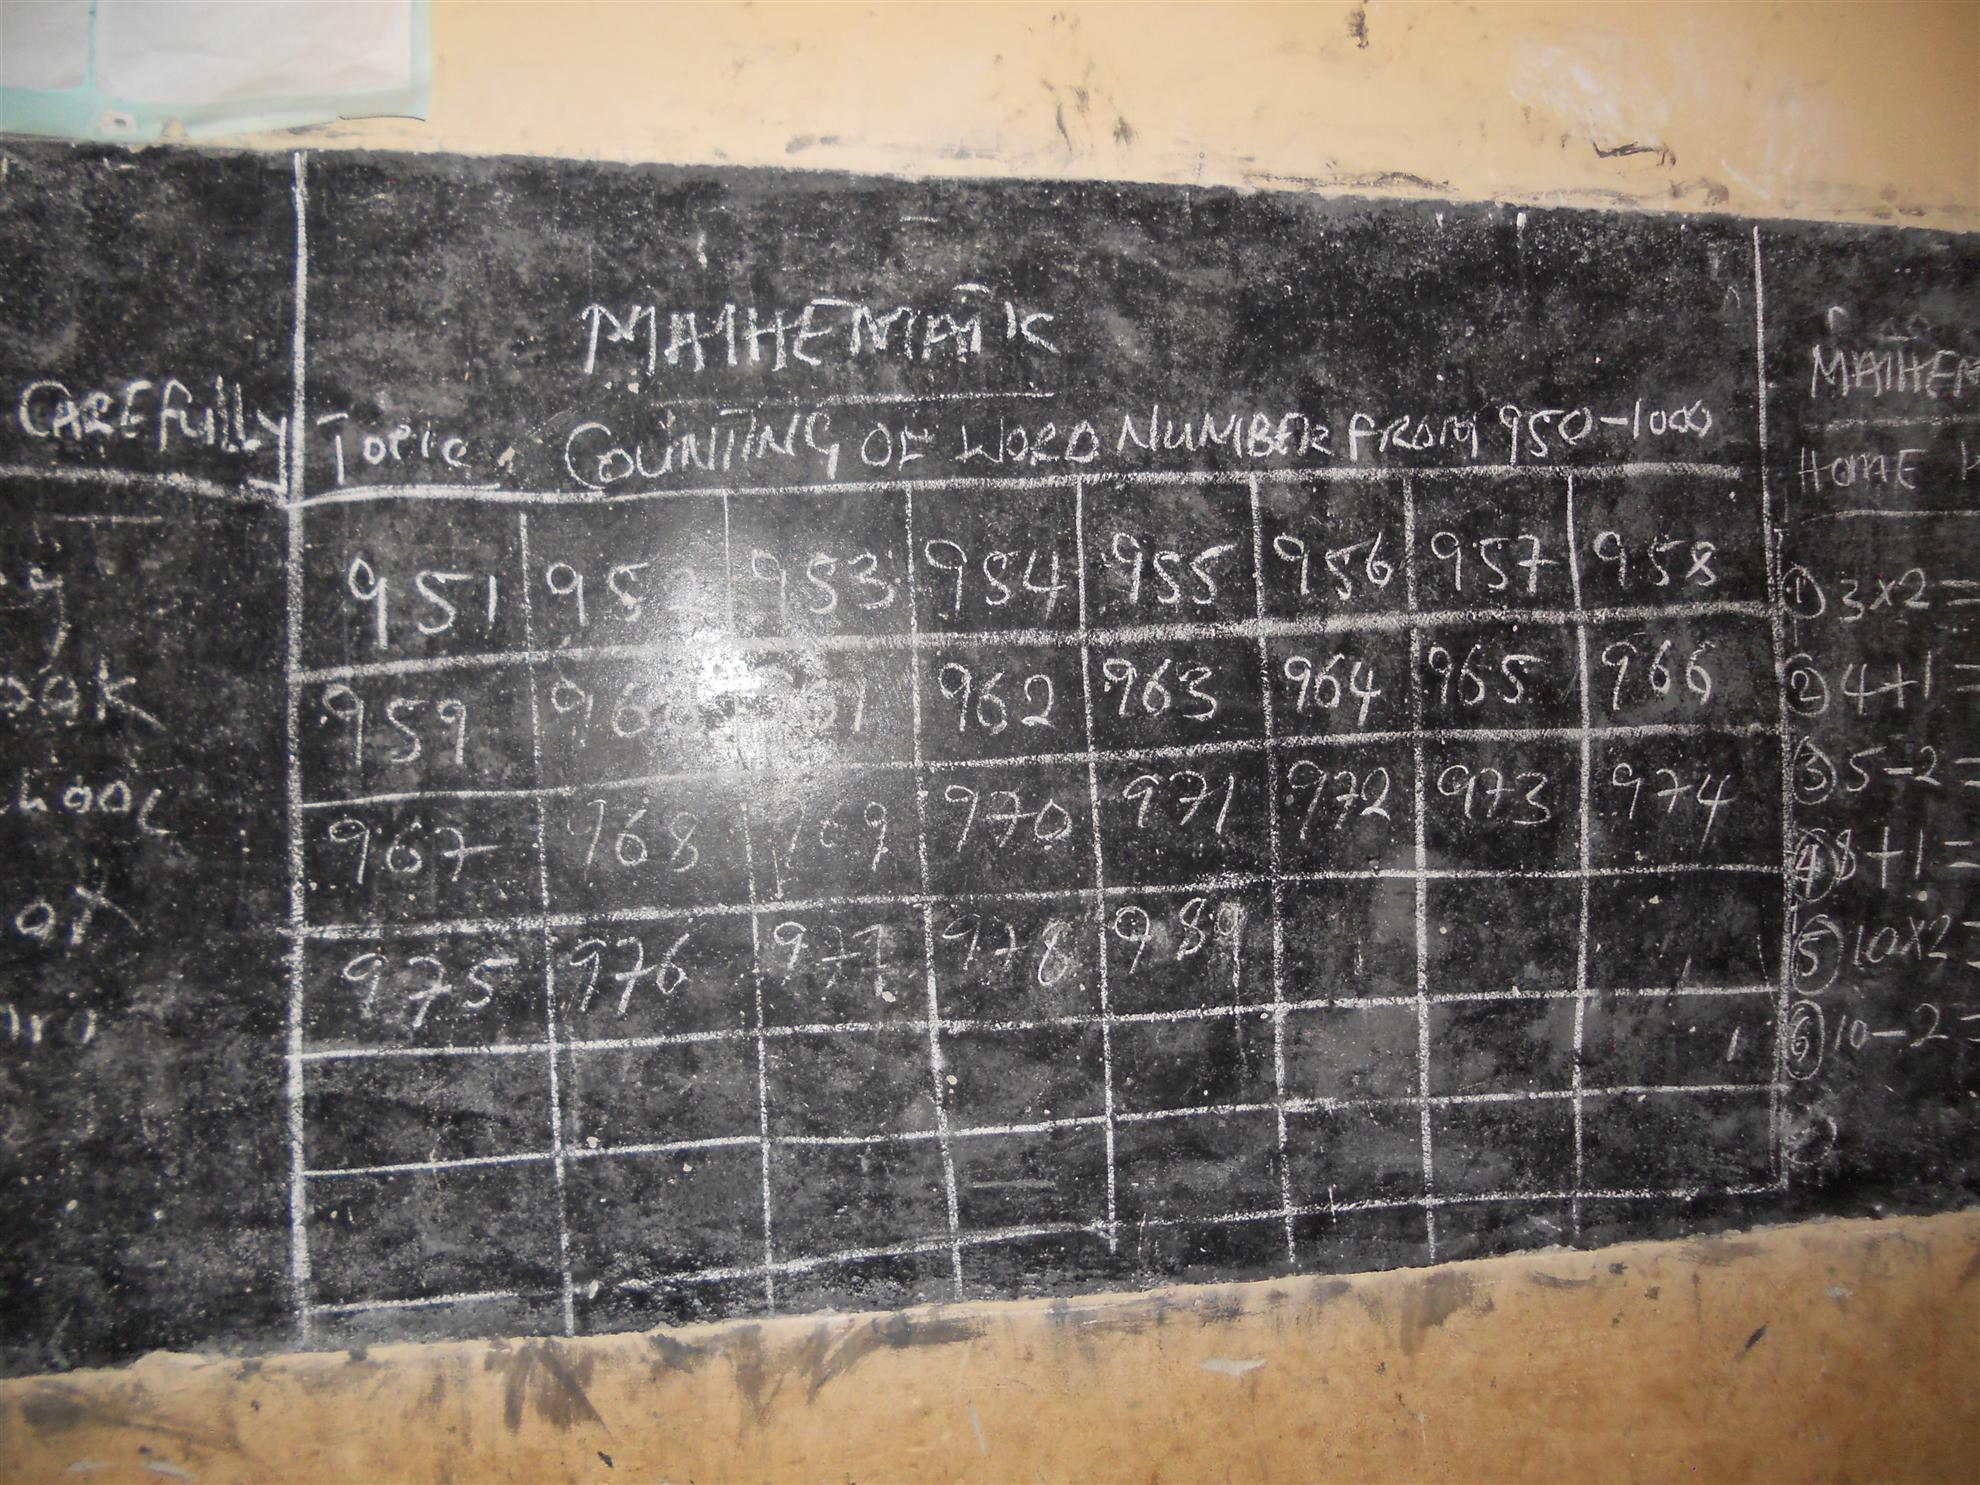 CAREFULLY
y
ook
chool
ox
MATHEMATIK
Topic. COUNTING OF WORD NUMBER FROM 950-1000
951 952 953 954 955 956 957 958
959 960 961 962 963 964 965 966
967 968 969 970 971 972 973 974
975 976 977 978 989
MATHEM
HOME
① 3x2=
② 4+1=
③ 5-2=
④ 8+1=
⑤ 10x2=
⑥ 10-2=